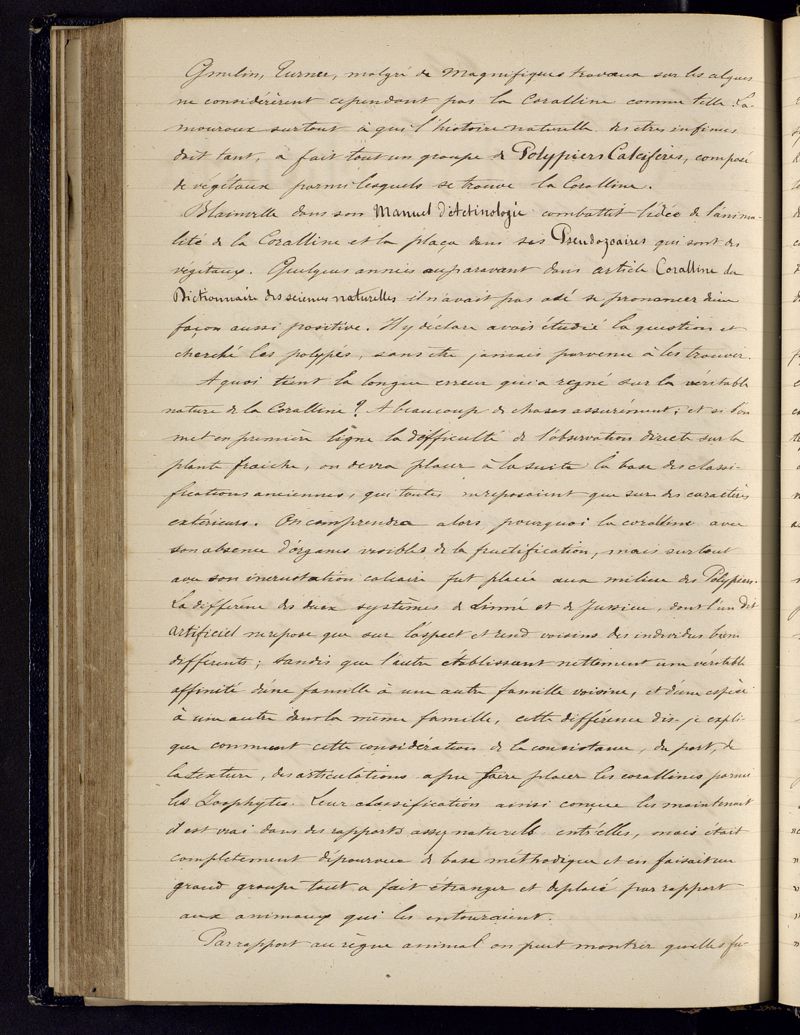 Gmelin, Turner, malgré de Magnifiques travaux sur les algues
ne considérèrent cependant pas la Coralline comme telle. La-
mouroux surtout à qui l'histoire naturelle des etres infimes
doit tant, a fait tout un groupe de Polypiers Calcifères, composé
de végétaux parmi lesquels se trouve la Coralline.
Blainville dans son Manuel d'Actinologie combattit l'idée de l'anima-
lité de la Coralline et la plaça dans ses Pseudozoaires qui sont des
végétaux. Quelques années auparavant dans article Coralline du
Dictionnaire des sciences naturelles il n'avait pas osé se prononcer d'une
façon aussi positive. Il y déclare avoir étudié la question et
cherché les polypes, sans être jamais parvenu à les trouver.
A quoi tient la longue erreur qui a regné sur la véritable
nature de la Coralline? A beaucoup de choses assurément; et si l'on
met en première ligne la difficulté de l'observation directe sur la
plante fraiche, on devra placer à la suite la base des classi-
fications anciennes, qui toutes ne reposaient que sur des caractères
extérieurs. On comprendra alors pourquoi la coralline avec
son absence d'organes visibles de la fructification, mais surtout
avec son incrustation calcaire fut placée aux milieu des Polypiers.
La différence des deux systèmes de Linné et de Jussieu, dont l'un dit
artificiel ne repose que sur l'aspect et rend voisins des individus bien
différents; tandis que l'autre établissant nettement une véritable
affinité d'une famille à une autre famille voisine, et d'une espèce
à une autre dans la même famille, cette différence dis-je expli-
que comment cette considération de la consistance, du port, de
la texture, des articulations a pu faire placer les corallines parmi
les Zoophytes. Leur classification ainsi conçue les maintenait
il est vrai dans des rapports assez naturels entr'elles, mais était
complètement dépourvue de base méthodique et en faisait un
grand groupe tout a fait étranger et deplacé par rapport
aux animaux qui les entouraient.
Par rapport au règne animal on peut montrer qu'elles fu-